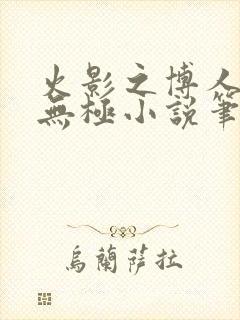 火影之博人
無極小說筆
烏蘭薩拉